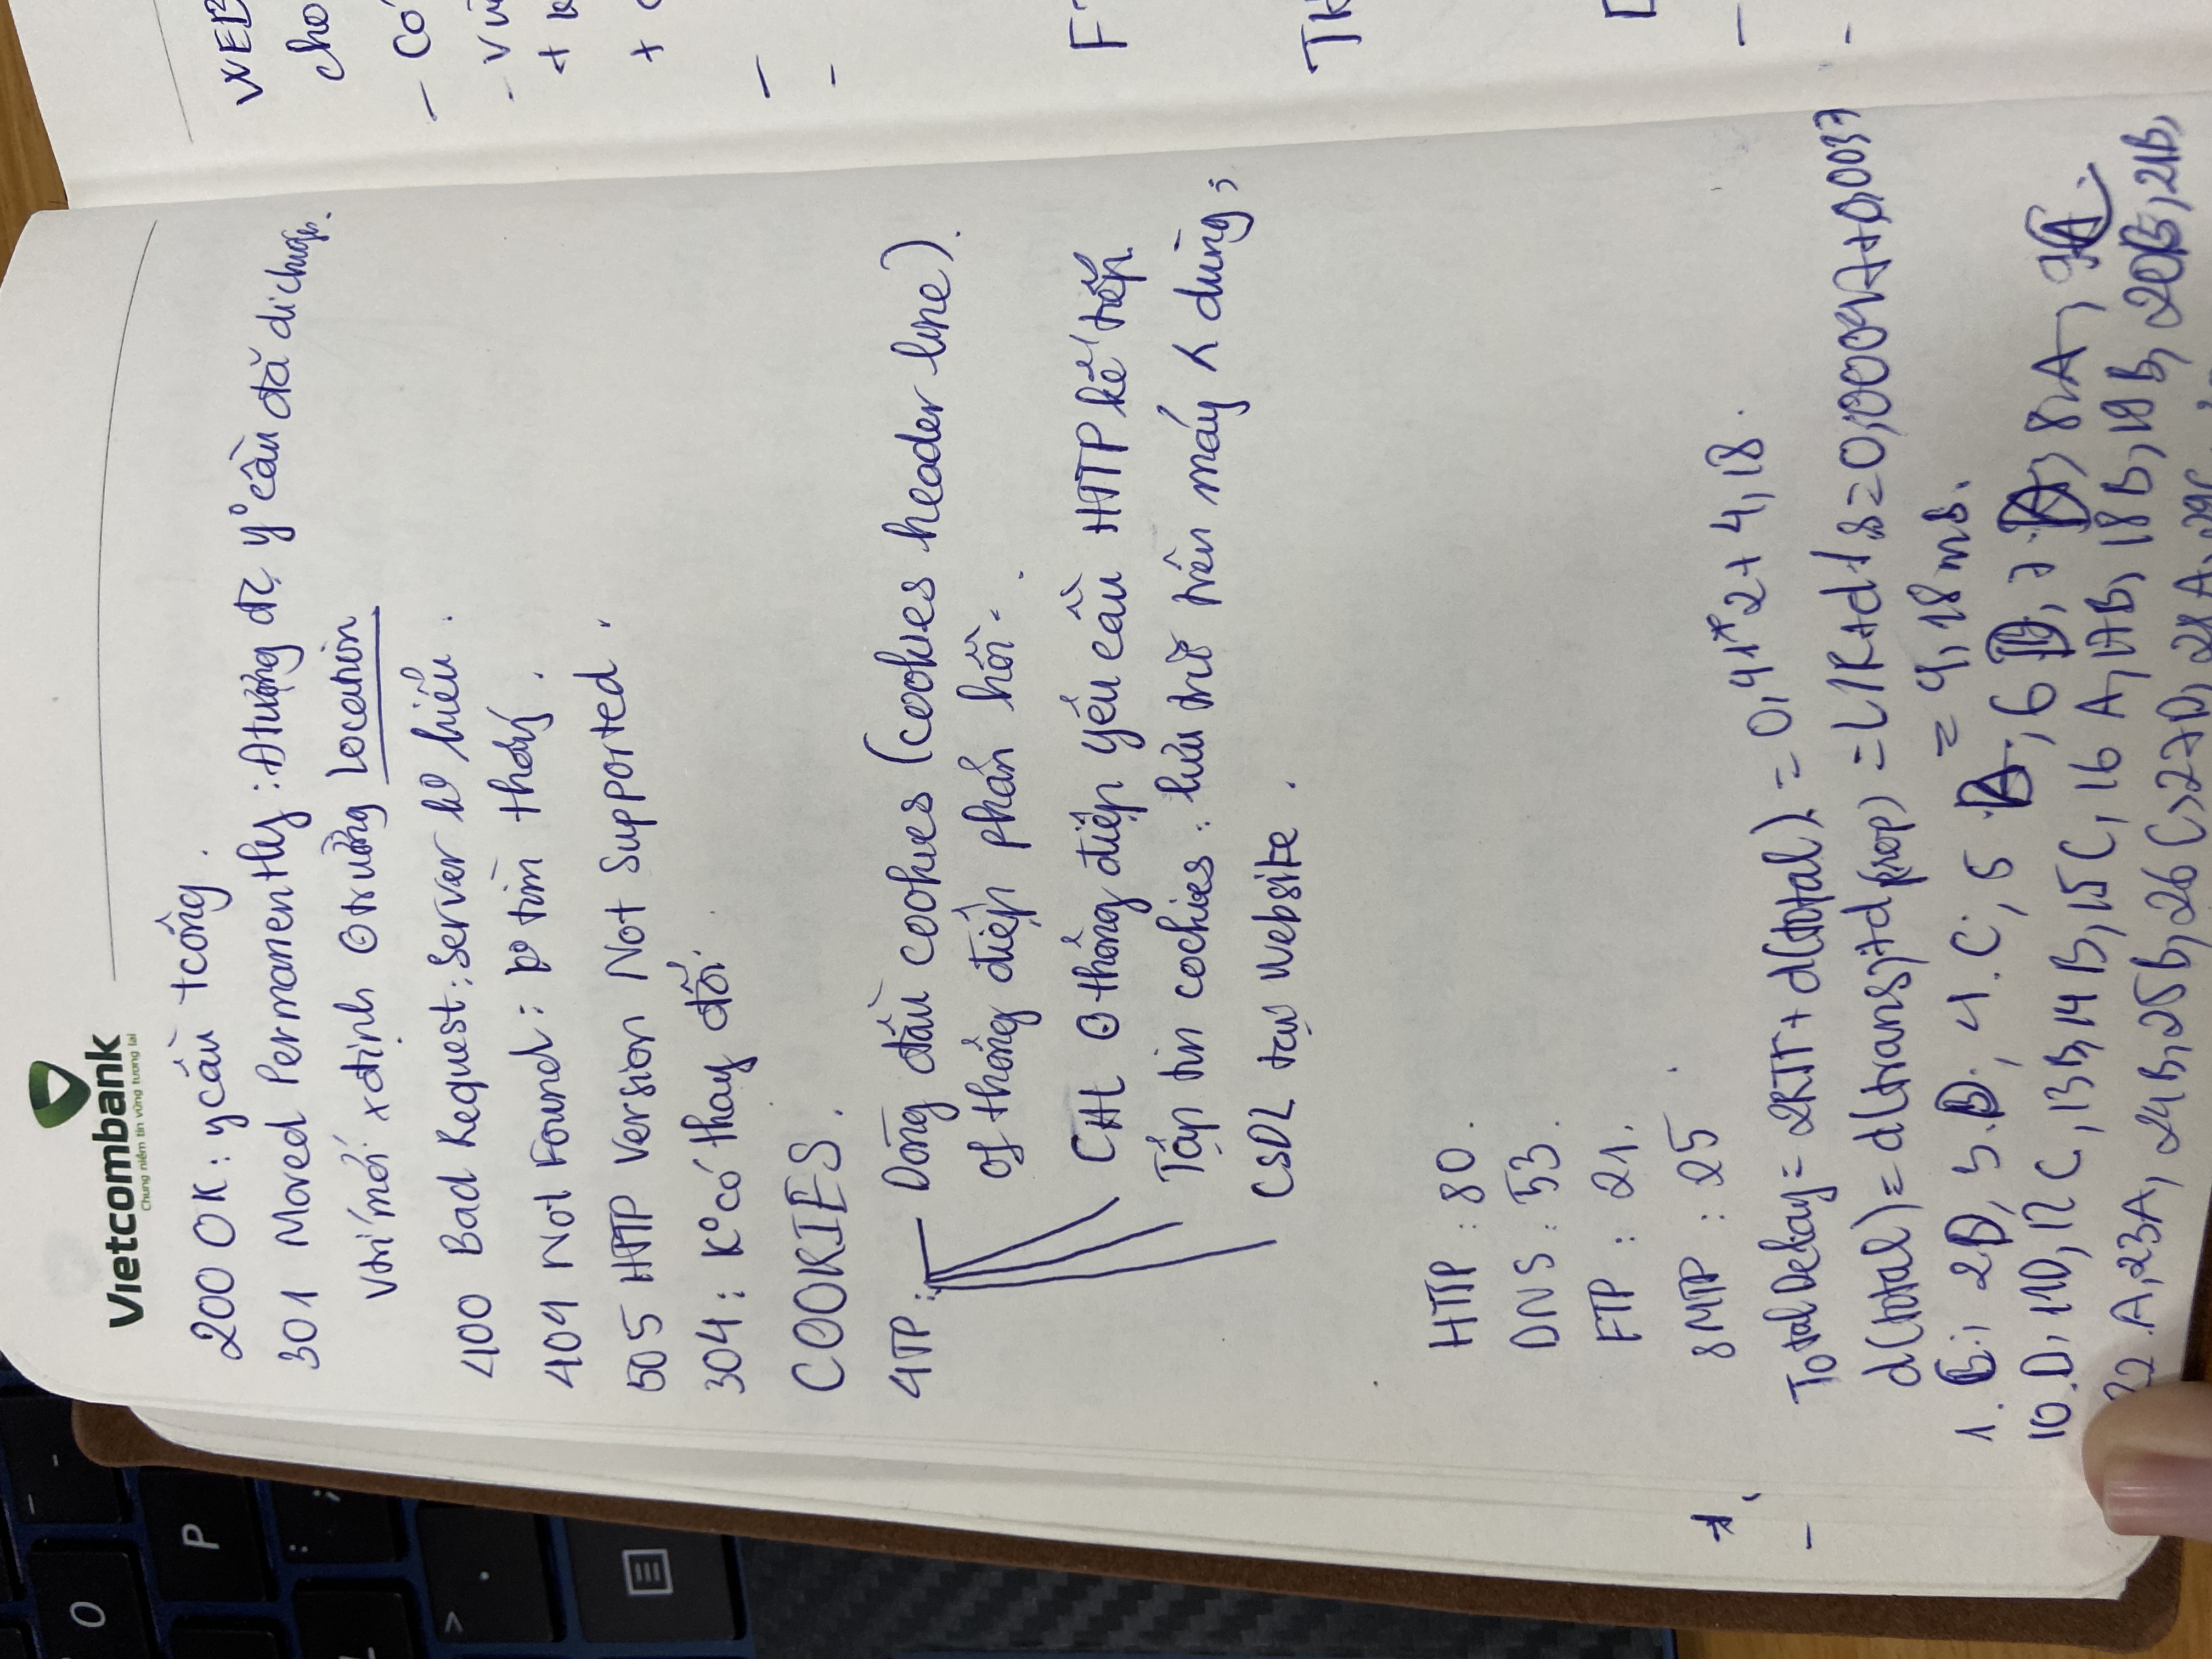 Vietcombank
Chung niềm tin vững tương lai
200 OK: ycầu tcông.
301 Moved Permanently: Đtượng đc yº cầu đã di chuyển.
Vtrí mới xđịnh ʘ trường Location
400 Bad Request: Server kº hiểu.
404 Not Found: kº tìm thấy.
505 HTTP Version Not Supported.
304: Kº có thay đổi.
COOKIES.
4TP: Dòng đầu cookies (cookies header line).
of thông điệp phản hồi.
CHL ʘ thông điệp yêu cầu HTTP kế tiếp.
Tập tin cookies: lưu trữ trên máy dùng;
CSDL tại Website.
HTTP: 80.
DNS: 53.
FTP: 21.
SMTP: 25
Total Delay = 2RTT + d(total) = 0,41*2 + 4,18.
d(total) = d(trans) + d(prop) = L/R + d/s = 0,00047 + 0,0037
= 4,18ms.
1. 2D, 3.D; 4.C; 5 ; 6 D, 7. ; 8.A, 9
10.D, 11D, 12C, 13B, 14B, 15C, 16A, 17B, 18B, 19B, 20B, 21B,
22.A, 23A, 24B, 25B, 26C, 27D, 28A, 29C
WEB
cho
- Có
+
+
-
-
F
TH
-
-